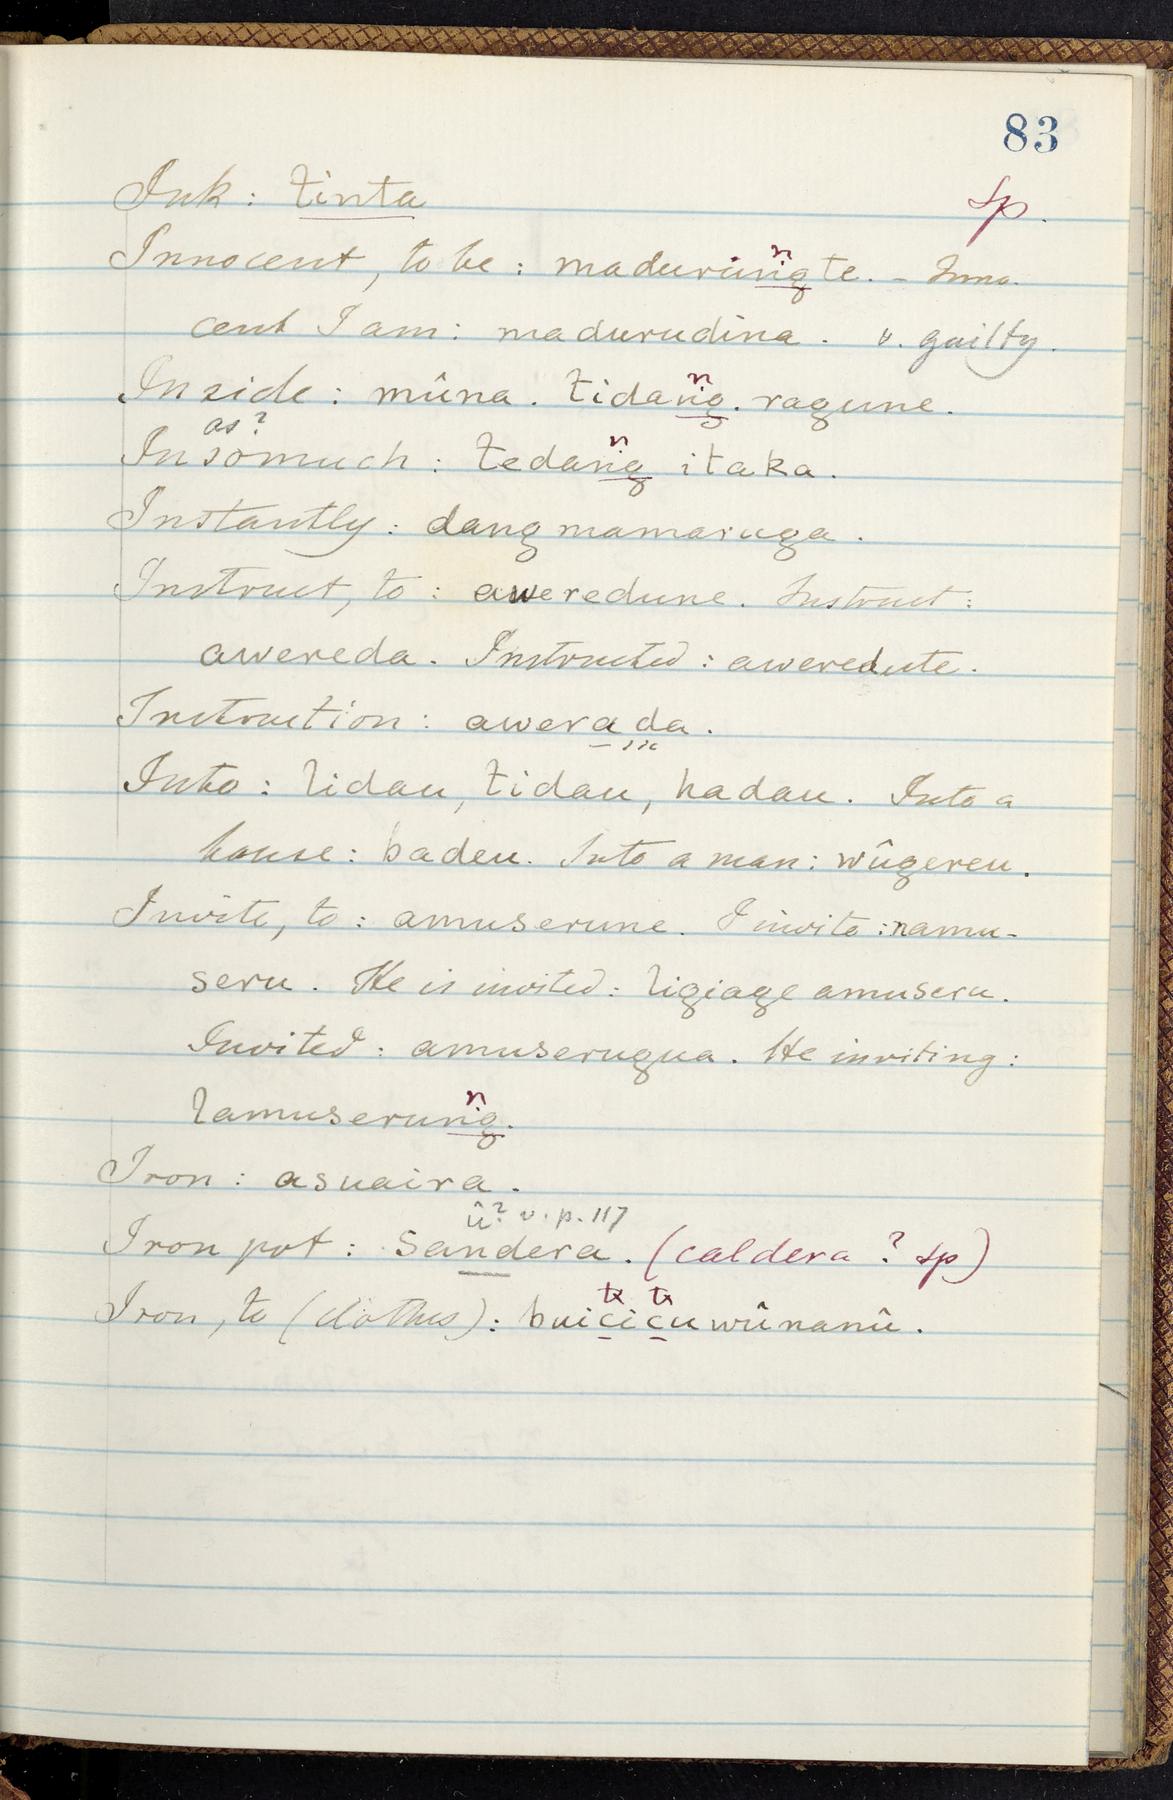 83
Ink : tinta sp.
Innocent, to be : madurun̈gte. – Inno-
cent I am : madurudina . v. guilty.
Inside : mûna . tidan̈g . ragune .
as ?
Insomuch : tedan̈g itaka .
Instantly : dang mamaruga .
Instruct, to : aweredune . Instruct :
awereda . Instructed : aweredute .
Instruction : awerada .
sic
Into : lidau, tidau, hadau . Into a
house : badeu . Into a man : wûgereu .
Invite, to : amuserune . I invite : namu-
seru . He is invited : ligiage amuseru .
Invited : amuserugua . He inviting :
lamuserun̈g .
Iron : asuaira .
û? v. p. 117
Iron pot : sandera . (caldera ? sp)
tx tx
Iron, to (clothes) : buicicu wûnanû .